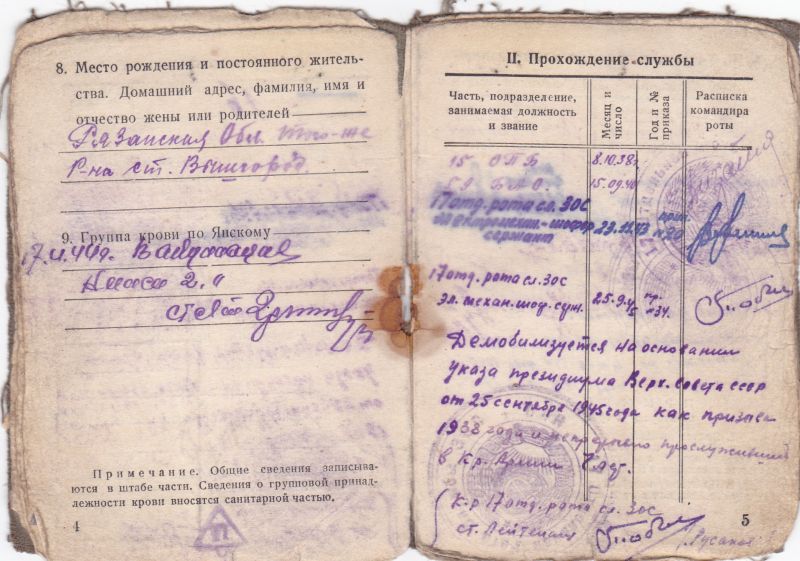 8. Место рождения и постоянного житель-
ства. Домашний адрес, фамилия, имя и
отчество жены или родителей
Рязанская Обл.
р-на ст. Вышгород
9. Группа крови по Янскому
17.II.44г.
2."
Примечание. Общие сведения записыва-
ются в штабе части. Сведения о групповой принад-
лежности крови вносятся санитарной частью.
4
II. Прохождение службы
Часть, подразделение, занимаемая должность и звание
Месяц и число
Год и № приказа
Расписка командира роты
15 ОПБ 8.10.38г
БАО 15.09.40
17 отд. рота сл. ЗОС
шофер 23.11.43 №20
сержант
17 отд. рота сл. ЗОС
Эл. механ. шоф. 25.9.45 №34.
Демобилизуется на основании
указа президиума Верх. совета СССР
от 25 сентября 1945 года как призыва
1938 года и непрерывно прослуживший
в Кр. Армии
К-р 17 отд. рота сл. ЗОС
ст. Лейтенант
5